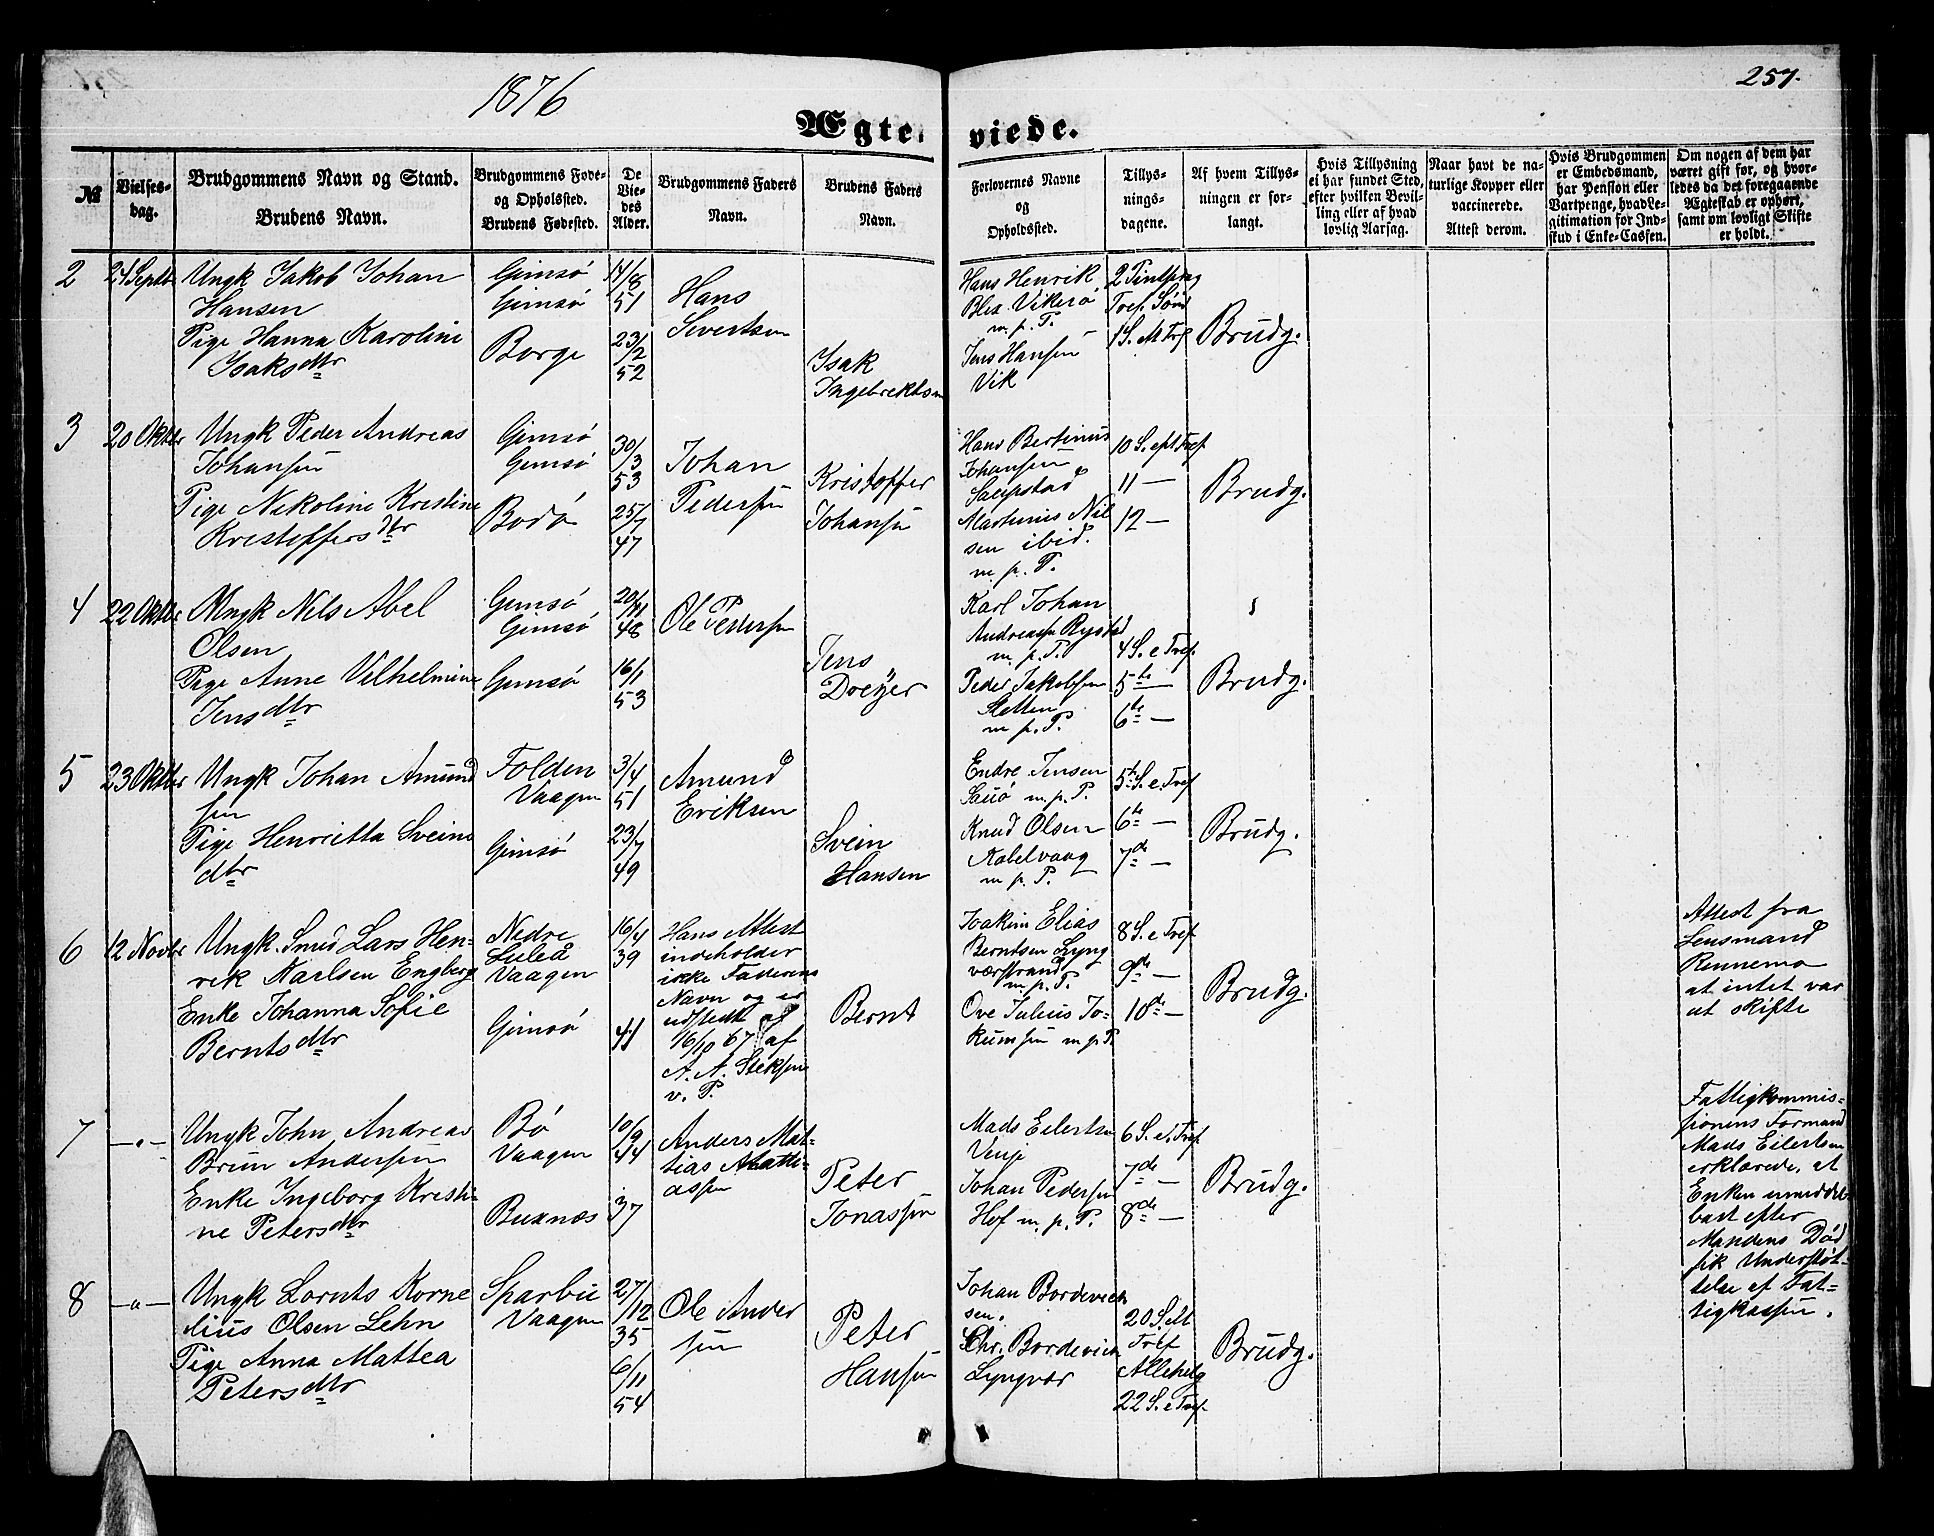 1876
257.
Ægteviede.
№
Vielses-
dag.
Brudgommens Navn og Stand.
Brudens Navn.
Brudgommens Føde-
og Opholdssted.
Brudens Fødested.
De
Vie-
des
Alder.
Brudgommens Faders
Navn.
Brudens Faders
Navn.
Forlovernes Navne
og
Opholdssted.
Tillys-
nings-
dagene.
Af hvem Tillys-
ningen er for-
langt.
Hvis Tillysning
ei har fundet Sted,
efter hvilken Bevil-
ling eller af hvad
lovlig Aarsag.
Naar havt de na-
turlige Kopper eller
vaccinerede.
Attest derom.
Hvis Brudgommen
er Embedsmand,
har Pension eller
Vartpenge, hvad Le-
gitimation for Ind-
skud i Enke-Cassen.
Om nogen af dem har
været gift før, og hvor-
ledes da det foregaaende
Ægteskab er ophørt,
samt om lovligt Skifte
er holdt.
2
24 Septbr
Ungk Jakob Johan
Hansen
Pige Hanna Karoline
Isaksdtr
Gimsø
Gimsø
Borge
14/8
51
23/2
52
Hans
Sivertsen
Isak
Ingebrektsen
Hans Henrik
m. p. P.
Jens Hansen
Vik
Brudg.
3
20 Oktbr
Ungk Peder Andreas
Johansen
Pige Nikoline Kristine
Kristoffersdtr
Gimsø
Gimsø
Bodø
30/3
53
25/7
47
Johan
Pedersen
Kristoffer
Johansen
Hans Bertinus
Johansen
Saupstad
Martinus Nil
sen ibid.
m. p. P.
10 S. eft Tref
11 —
12 —
Brudg.
4
22 Oktbr
Ungk Nils Abel
Olsen
Pige Anne Vilhelmine
Jensdtr
Gimsø
Gimsø
Gimsø
20/11
48
16/1
53
Ole Pedersen
Jens
Dreyer
Karl Johan
Andreassen Rystad
m. p. P.
Peder Jakobsen
Sletten
m. p. P.
4 S. e Tref
5te —
6te —
Brudg.
5
23 Oktbr
Ungk Johan Amund
sen
Pige Henrietta Svein
dtr
Folden
Vaagen
Gimsø
3/4
51
23/7
49
Amund
Eriksen
Svein
Hansen
Endre Jensen
m. p. P.
Knud Olsen
Kabelvaag
m. p. P.
5te S. e. Tref
6te —
7de —
Brudg.
6
12 Novbr
Ungk. Smed Lars Hen-
rik Karlsen Engberg
Enke Johanna Sofie
Berntsdtr
Nedre
Luleå
Vaagen
Gimsø
16/4
39
44
Hans Attest
indeholder
ikke Faderens
Navn og er
udstedt
16/10 67 af
v. P.
Bernt
Joakim Elias
Berntsen Lyng
værstrand
m. p. P.
Ove Julius Jo-
kumsen m p P.
8 S. e Tref
9de —
10de —
Brudg.
Attest fra
Lensmand
Rinnemo
at intet var
at skifte
7
—"—
Ungk John Andreas
Brun Andersen
Enke Ingeborg Kristi-
ne Petersdtr
Bø
Vaagen
Buxnæs
10/9
44
37
Anders Mat-
tias Matti-
assen
Peter
Jonassen
Mads Eilertsen
Johan Pedersen
Hof m. p. P.
6 S. e. Tref
7de —
8de —
Brudg.
Fattigkommis-
sionens Formand
Mads Eilertsen
erklærede, at
Enken umiddel-
bart efter
Mandens Død
fik Understøt-
telse af Fat-
tigkassen.
8
—"—
Ungk Lornts Korne
lius Olsen Lehn
Pige Anna Mattea
Petersdtr
Sparbu
Vaagen
27/12
35
6/11
54
Ole Ander
sen
Peter
Hansen
Johan Bordevick
sen.
Chr. Bordevick
Lyngvær
20 S.
Tref
Allehelg
22 S. e Tref
Brudg.